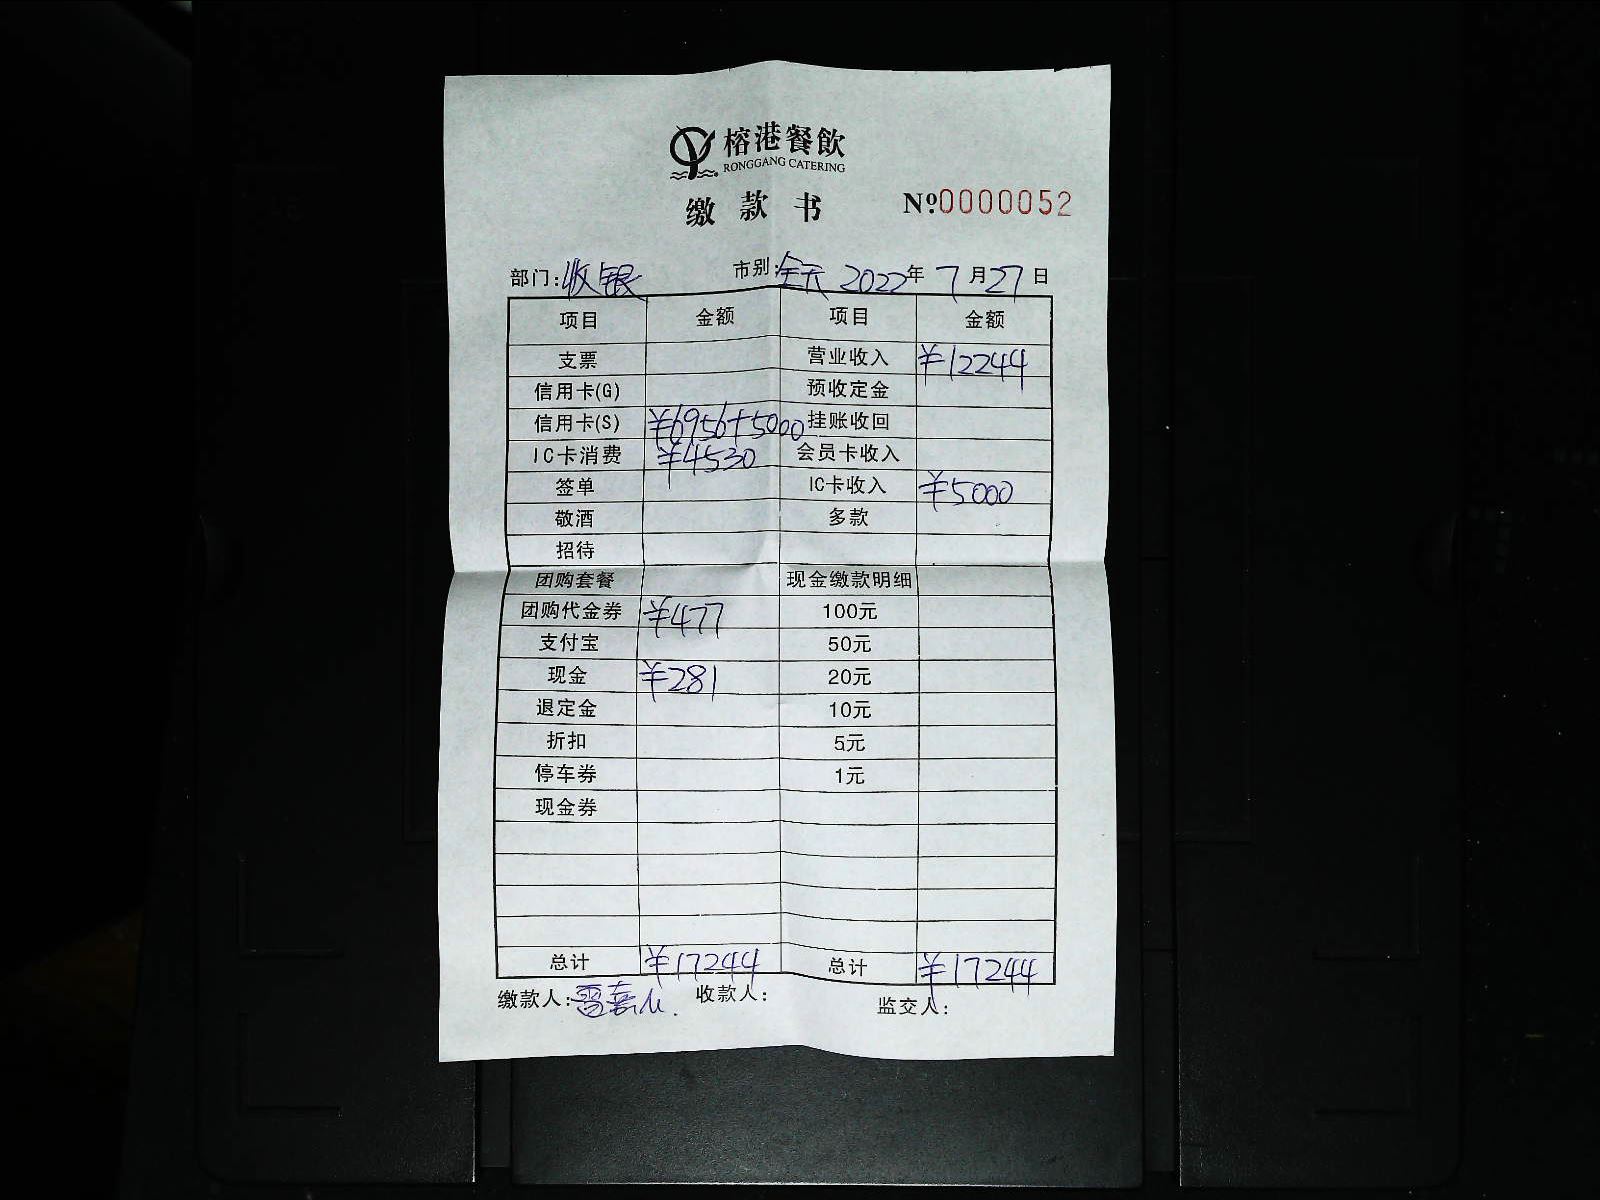 榕港餐飲
RONGGANG CATERING
缴款书 №0000052
部门:收银 市别:全天 2022年7月27日
项目 金额 项目 金额
支票 营业收入 ¥12244
信用卡(G) 预收定金
信用卡(S) ¥6956+5000 挂账收回
IC卡消费 ¥4530 会员卡收入
签单 IC卡收入 ¥5000
敬酒 多款
招待
团购套餐 现金缴款明细
团购代金券 ¥477 100元
支付宝 50元
现金 ¥281 20元
退定金 10元
折扣 5元
停车券 1元
现金券
总计 ¥17244 总计 ¥17244
缴款人: 收款人: 监交人: